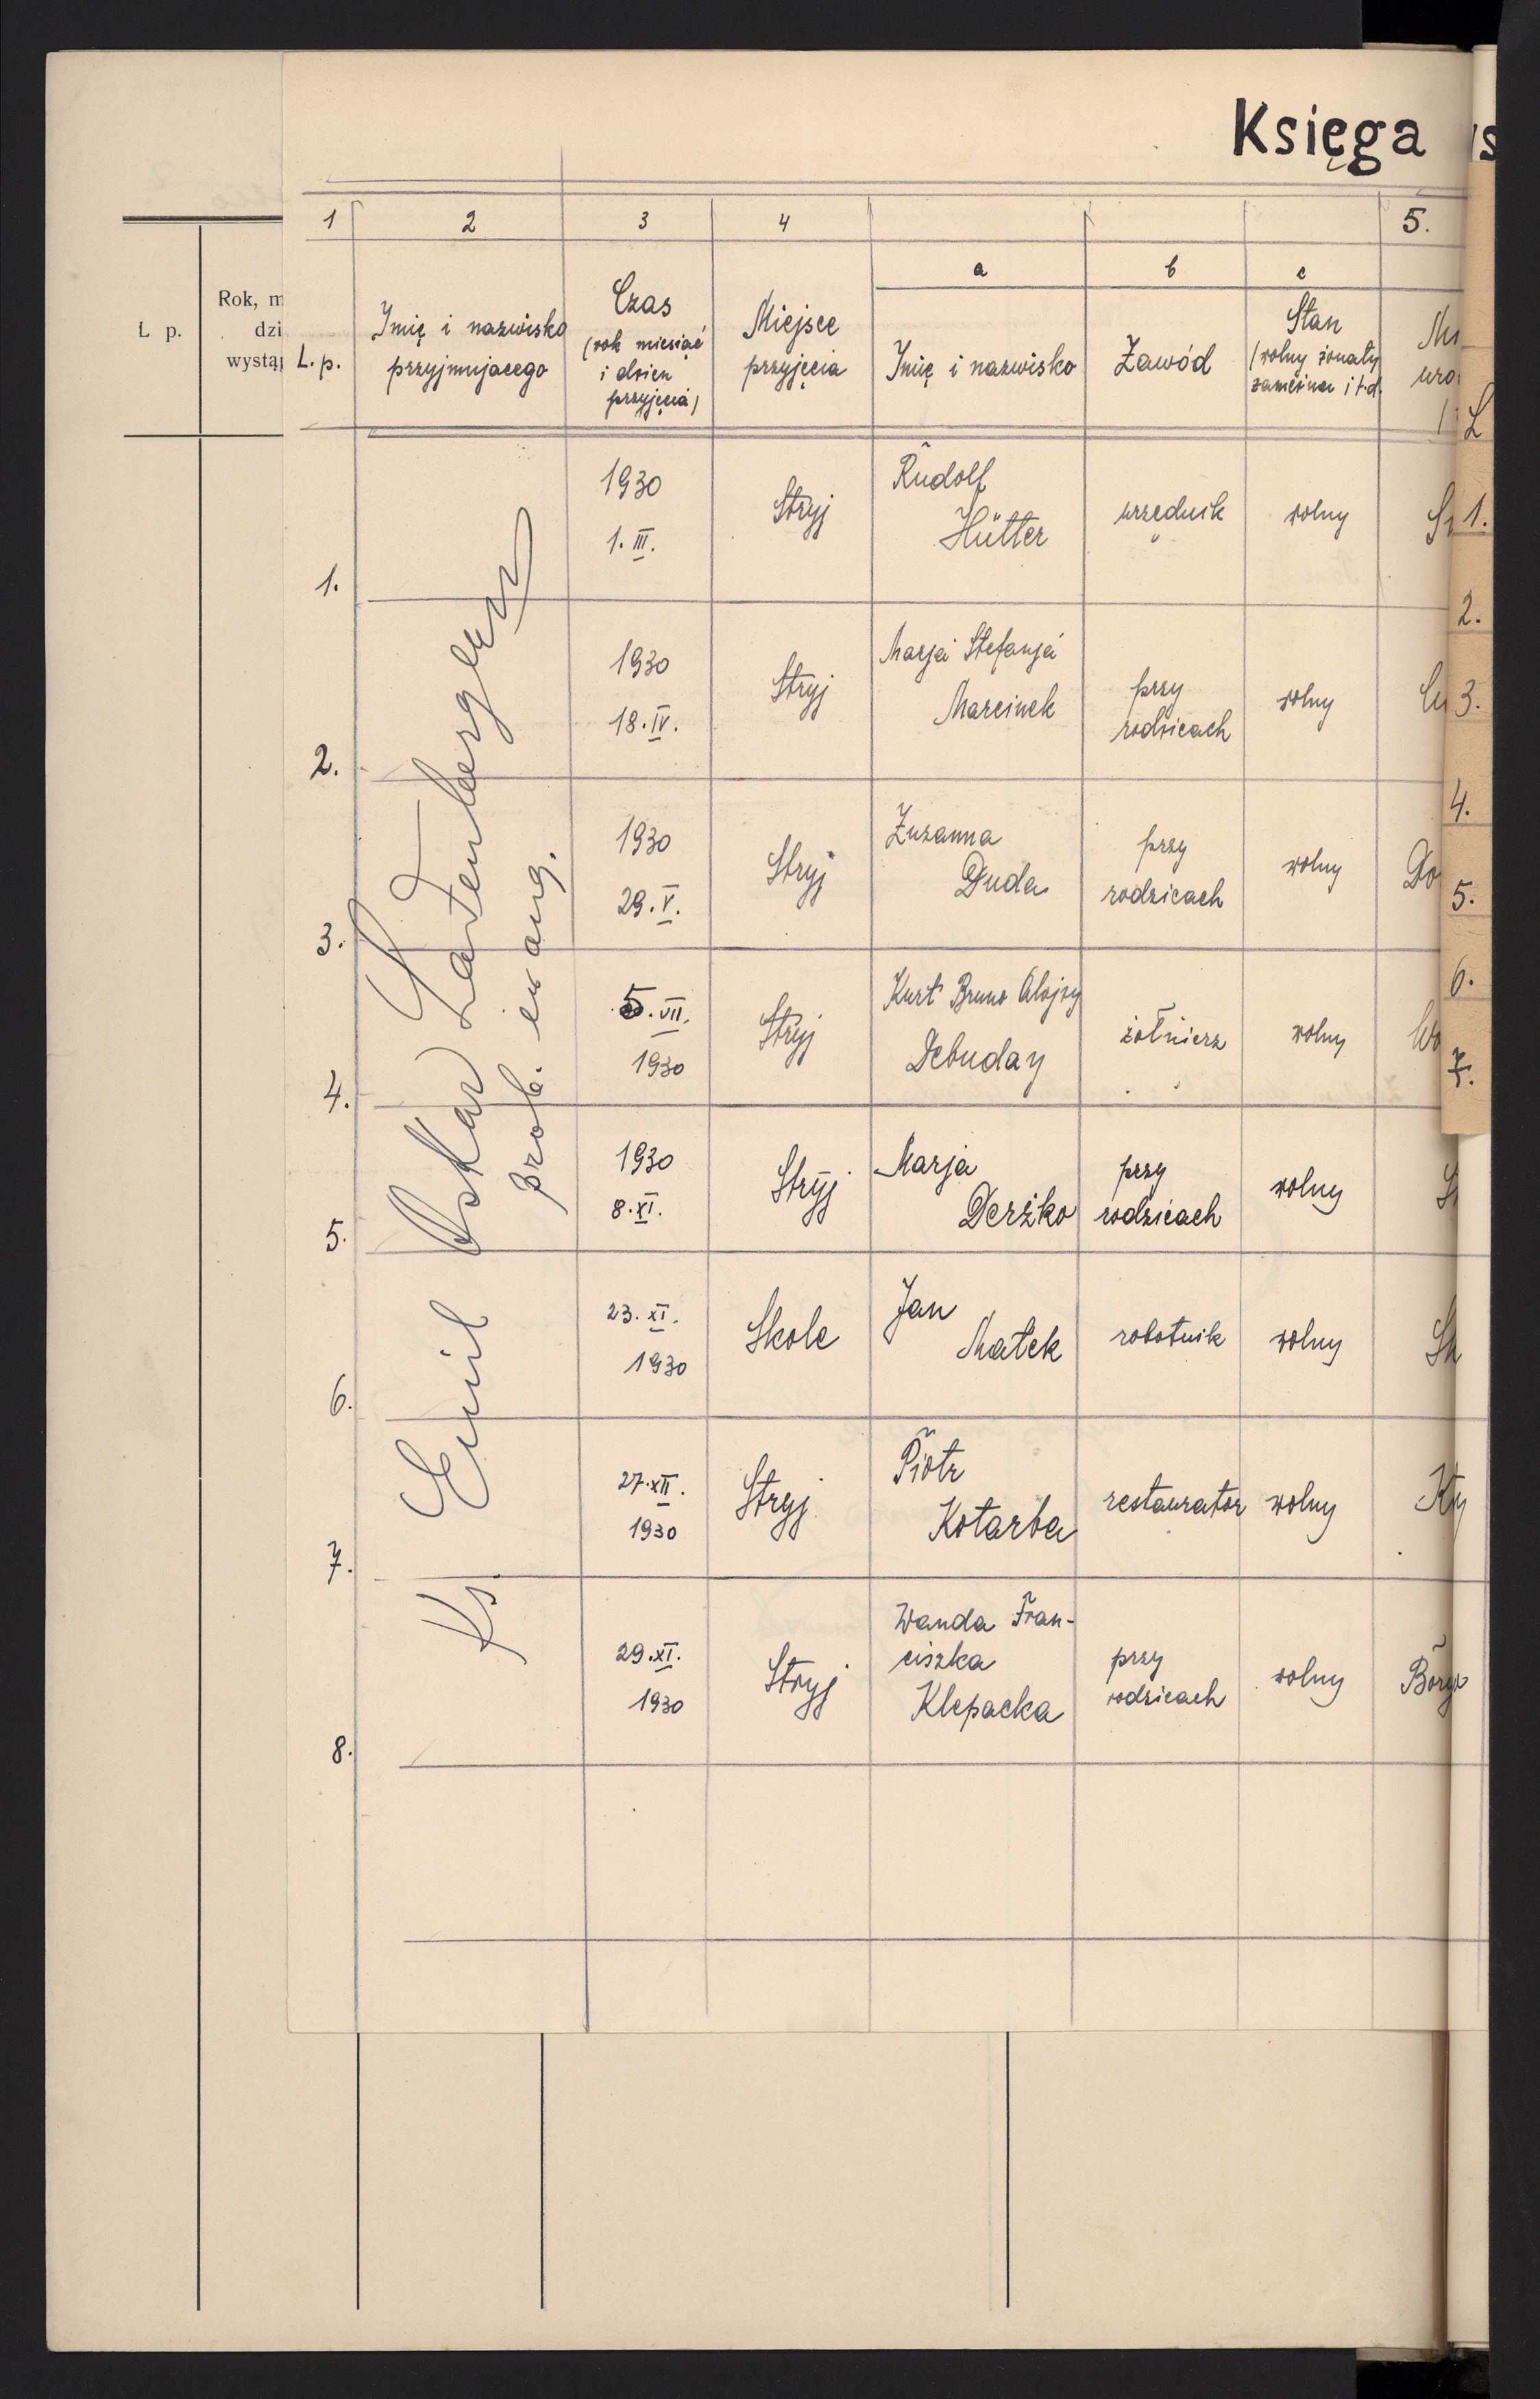 Księga
1 2 3 4 5.
a b c
L p.
Rok, m
dzi
wystą
L. p.
Imię i nazwisko
przyjmujacego
Czas
(rok miesiąc
i dzien
przyjęcia)
Miejsce
przyjęcia
Imię i nazwisko
Zawód
Stan
(wolny żonaty
zamężna i t.d.
Ks. Emil Oskar Ladenberger
prob. ewang.
1.
1930
1. III.
Stryj
Rudolf
Hütter
urzędnik
wolny
2.
1930
18. IV.
Stryj
Marja Stefanja
Marcinek
przy
rodzicach
wolny
3.
1930
29. V.
Stryj
Zuzanna
Duda
przy
rodzicach
wolny
Do
4.
5. VII.
1930
Stryj
Kurt Bruno Alojzy
Debuday
żołnierz
wolny
Wo
5.
1930
8. XI.
Stryj
Marja
Derżko
przy
rodzicach
wolny
6.
23. XI.
1930
Skole
Jan
Małek
robotnik
wolny
Sk
7.
27. XII.
1930
Stryj
Piotr
Kotarba
restaurator
wolny
8.
29. XI.
1930
Stryj
Wanda Fran-
ciszka
Klepacka
przy
rodzicach
wolny
Borys
L
1.
2.
3.
4.
5.
6.
7.